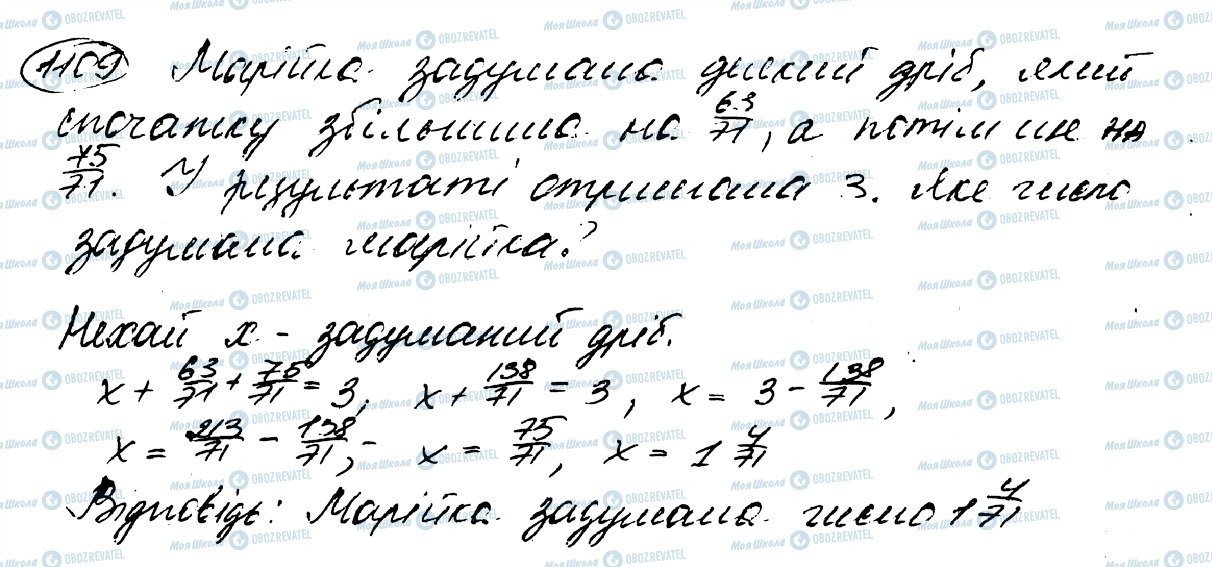 1109 Марійка задумала деякий дріб, який
спочатку збільшила на 63/71, а потім ще на
75/71. У результаті отримала 3. Яке число
задумала Марійка?
Нехай x - задуманий дріб.
x + 63/71 + 75/71 = 3; x + 138/71 = 3, x = 3 - 138/71,
x = 213/71 - 138/71; x = 75/71, x = 1 4/71
Відповідь: Марійка задумала число 1 4/71